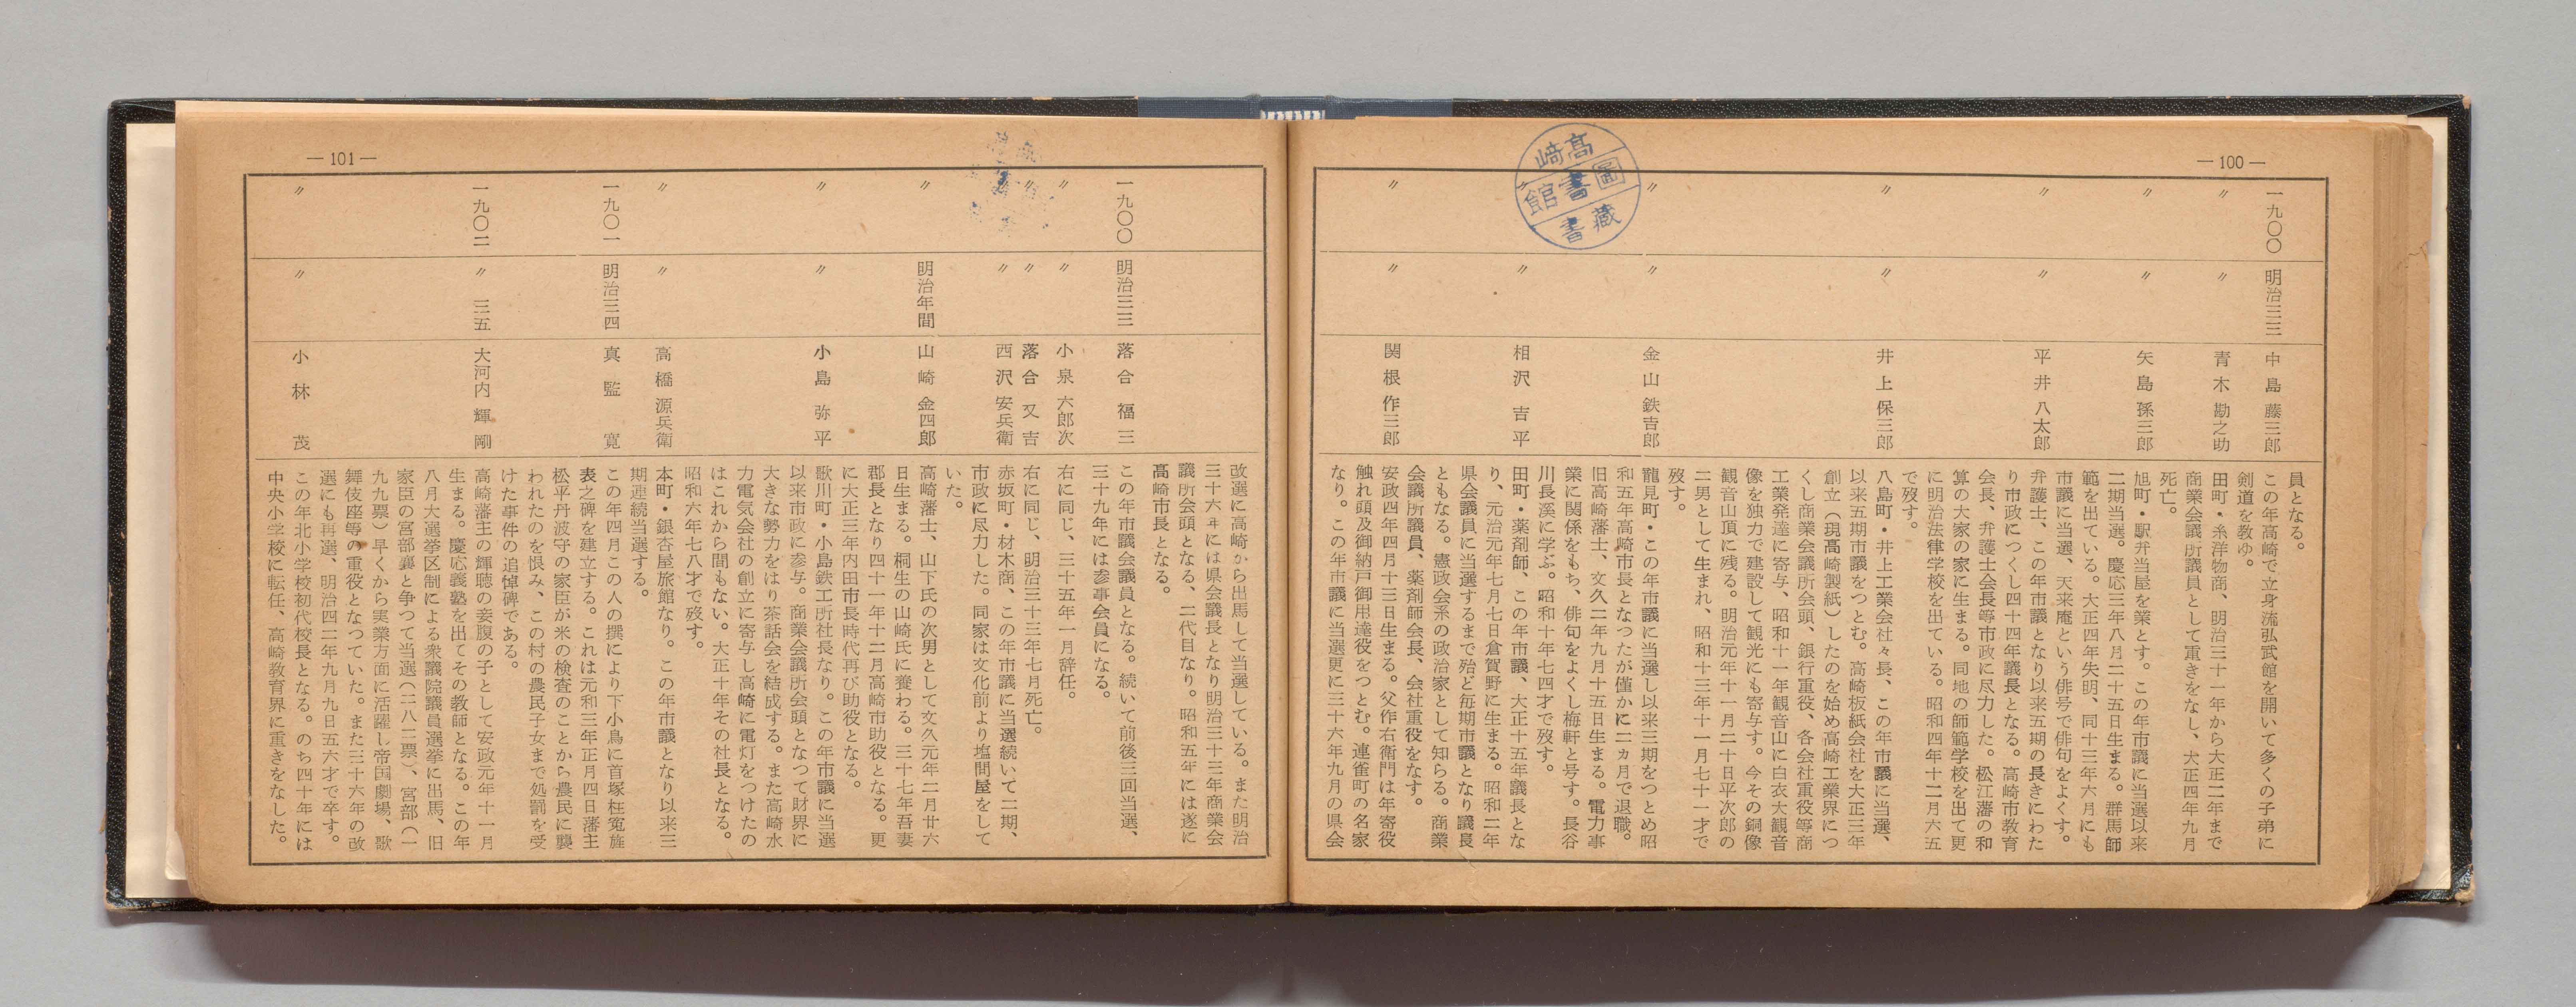 — 100 —
高崎
圖書館
藏書
員となる。
一九〇〇 明治三三 中島藤三郎 この年高崎で立身流弘武館を開いて多くの子弟に
剣道を教ゆ。
〃 〃 青木勘之助 田町・糸洋物商、明治三十一年から大正二年まで
商業会議所議員として重きをなし、大正四年九月
死亡。
〃 〃 矢島孫三郎 旭町・駅弁当屋を業とす。この年市議に当選以来
二期当選。慶応三年八月二十五日生まる。群馬師
範を出ている。大正四年失明、同十三年六月にも
市議に当選、天来庵という俳号で俳句をよくす。
〃 〃 平井八太郎 弁護士、この年市議となり以来五期の長きにわた
り市政につくし四十四年議長となる。高崎市教育
会長、弁護士会長等市政に尽力した。松江藩の和
算の大家の家に生まる。同地の師範学校を出て更
に明治法律学校を出ている。昭和四年十二月六五
で歿す。
〃 〃 井上保三郎 八島町・井上工業会社々長、この年市議に当選、
以来五期市議をつとむ。高崎板紙会社を大正三年
創立（現高崎製紙）したのを始め高崎工業界につ
くし商業会議所会頭、銀行重役、各会社重役等商
工業発達に寄与、昭和十一年観音山に白衣大観音
像を独力で建設して観光にも寄与す。今その銅像
観音山頂に残る。明治元年十一月二十日平次郎の
二男として生まれ、昭和十三年十一月七十一才で
歿す。
〃 〃 金山鉄吉郎 龍見町・この年市議に当選し以来三期をつとめ昭
和五年高崎市長となつたが僅かに二ヵ月で退職。
旧高崎藩士、文久二年九月十五日生まる。電力事
業に関係をもち、俳句をよくし梅軒と号す。長谷
川長溪に学ぶ。昭和十年七四才で歿す。
〃 〃 相沢吉平 田町・薬剤師、この年市議、大正十五年議長とな
り、元治元年七月七日倉賀野に生まる。昭和二年
県会議員に当選するまで殆ど毎期市議となり議長
ともなる。憲政会系の政治家として知らる。商業
会議所議員、薬剤師会長、会社重役をなす。
〃 〃 関根作三郎 安政四年四月十三日生まる。父作右衛門は年寄役
触れ頭及御納戸御用達役をつとむ。連雀町の名家
なり。この年市議に当選更に三十六年九月の県会
— 101 —
改選に高崎から出馬して当選している。また明治
三十六年には県会議長となり明治三十三年商業会
議所会頭となる、二代目なり。昭和五年には遂に
高崎市長となる。
一九〇〇 明治三三 落合福三 この年市議会議員となる。続いて前後三回当選、
三十九年には参事会員になる。
〃 〃 小泉六郎次 右に同じ、三十五年一月辞任。
〃 〃 落合又吉 右に同じ、明治三十三年七月死亡。
〃 西沢安兵衛 赤坂町・材木商、この年市議に当選続いて二期、
市政に尽力した。同家は文化前より塩問屋をして
いた。
〃 明治年間 山崎金四郎 高崎藩士、山下氏の次男として文久元年二月廿六
日生まる。桐生の山崎氏に養わる。三十七年吾妻
郡長となり四十一年十二月高崎市助役となる。更
に大正三年内田市長時代再び助役となる。
〃 〃 小島弥平 歌川町・小島鉄工所社長なり。この年市議に当選
以来市政に参与。商業会議所会頭となつて財界に
大きな勢力をはり茶話会を結成する。また高崎水
力電気会社の創立に寄与し高崎に電灯をつけたの
はこれから間もない。大正十年その社長となる。
昭和六年七八才で歿す。
〃 〃 高橋源兵衛 本町・銀杏屋旅館なり。この年市議となり以来三
期連続当選する。
一九〇一 明治三四 真監寛 この年四月この人の撰により下小鳥に首塚柱寃旌
表之碑を建立する。これは元和三年正月四日藩主
松平丹波守の家臣が米の検査のことから農民に襲
われたのを恨み、この村の農民子女まで処罰を受
けた事件の追悼碑である。
一九〇二 〃 三五 大河内輝剛 高崎藩主の輝聴の妾腹の子として安政元年十一月
生まる。慶応義塾を出てその教師となる。この年
八月大選挙区制による衆議院議員選挙に出馬、旧
家臣の宮部襄と争つて当選（二八二票）、宮部（一
九九票）早くから実業方面に活躍し帝国劇場、歌
舞伎座等の重役となつていた。また三十六年の改
選にも再選、明治四二年九月九日五六才で卒す。
〃 〃 小林茂 この年北小学校初代校長となる。のち四十年には
中央小学校に転任、高崎教育界に重きをなした。